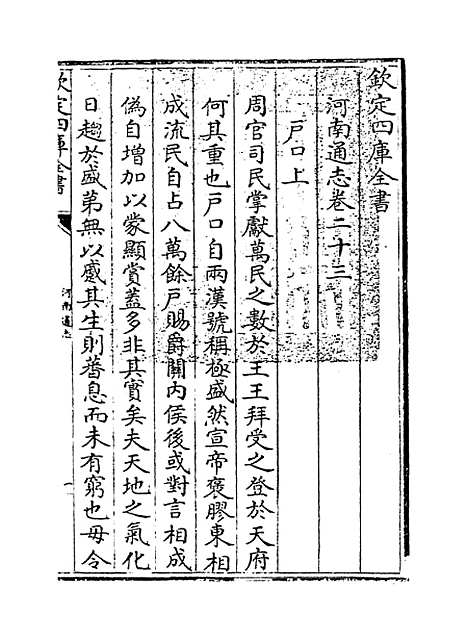 欽定四庫全書
河南通志卷二十三
戶口上
周官司民掌獻萬民之數於王王拜受之登於天府
何其重也戶口自兩漢號稱極盛然宣帝褒膠東相
成流民自占八萬餘戶賜爵關内侯後或對言相成
偽自增加以蒙顯賞蓋多非其實矣夫天地之氣化
日趨於盛第無以蹙其生則蕃息而未有窮也毋令
欽定四庫全書
河南通志
一